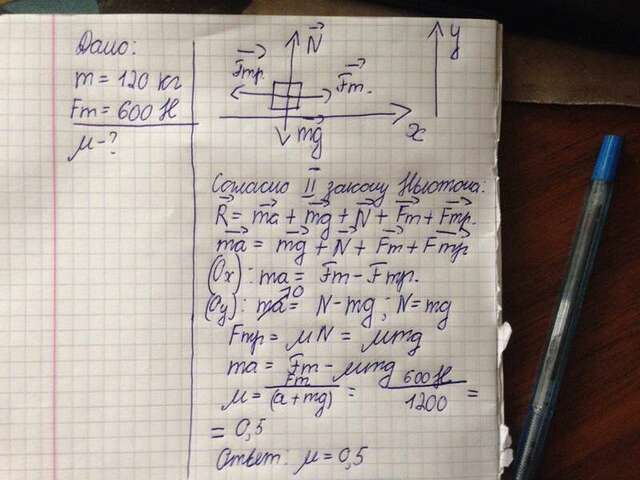 Дано:
m = 120 кг
Fт = 600 Н
μ - ?
N
y
Fтр.
Fт.
x
mg
Согласно II закону Ньютона:
R = ma + mg + N + Fт + Fтр.
ma = mg + N + Fт + Fтр
(Ox): ma = Fт - Fтр.
(Oy): ma = N - mg; N = mg
Fтр = μN = μmg
ma = Fт - μmg
μ = Fт / (a + mg) = 600 Н / 1200 =
= 0,5
Ответ: μ = 0,5